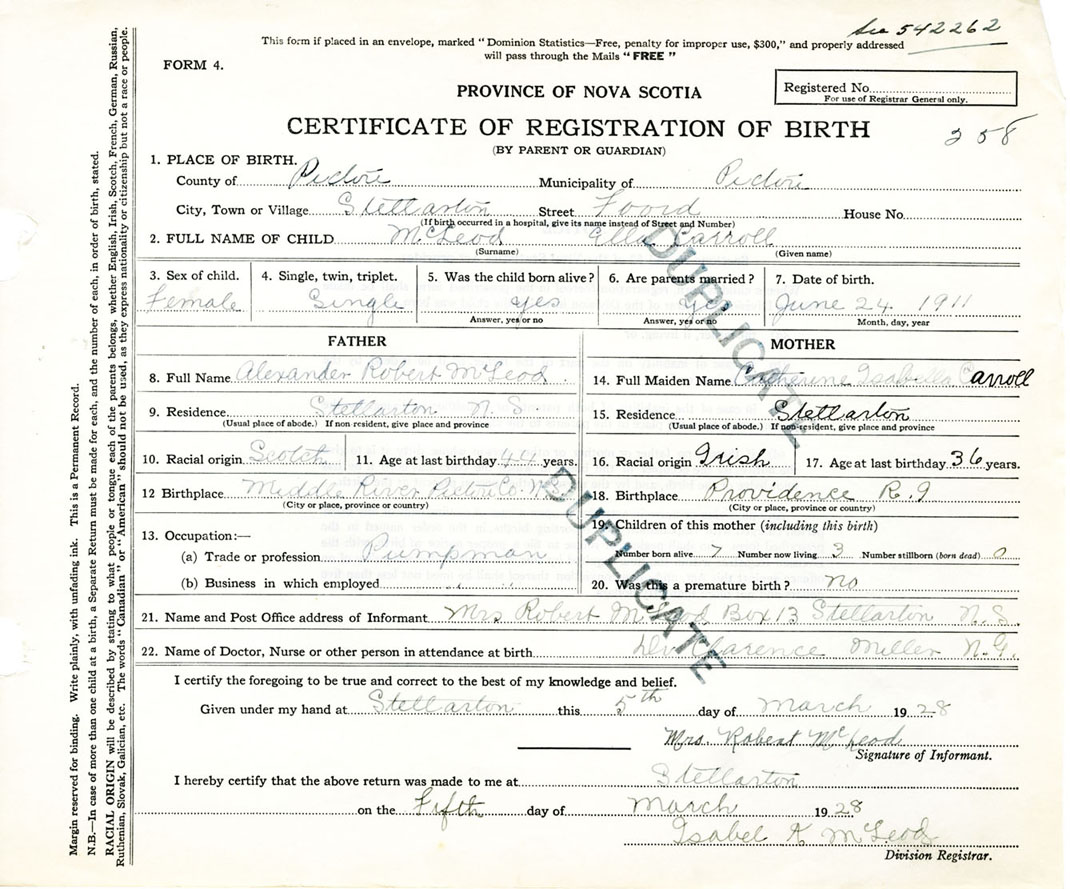 See 542262
This form if placed in an envelope, marked “Dominion Statistics—Free, penalty for improper use, $300,” and properly addressed
will pass through the Mails “FREE”
FORM 4.
PROVINCE OF NOVA SCOTIA
Registered No.
For use of Registrar General only.
CERTIFICATE OF REGISTRATION OF BIRTH
358
(BY PARENT OR GUARDIAN)
1. PLACE OF BIRTH.
County of Pictou Municipality of Pictou
City, Town or Village Stellarton Street Foord House No.
(If birth occurred in a hospital, give its name instead of Street and Number)
2. FULL NAME OF CHILD McLeod Ella Carroll
(Surname) (Given name)
3. Sex of child. 4. Single, twin, triplet. 5. Was the child born alive? 6. Are parents married? 7. Date of birth.
Female Single yes yes June 24 1911
Answer, yes or no Answer, yes or no Month, day, year
FATHER MOTHER
8. Full Name Alexander Robert McLeod 14. Full Maiden Name Catherine Isabella Carroll
9. Residence Stellarton N. S. 15. Residence Stellarton
(Usual place of abode.) If non resident, give place and province (Usual place of abode.) If non-resident, give place and province
10. Racial origin Scotch 11. Age at last birthday 44 years. 16. Racial origin Irish 17. Age at last birthday 36 years.
12 Birthplace Middle River Pictou Co. 18. Birthplace Providence R. I
(City or place, province or country) (City or place, province or country)
13. Occupation:— 19. Children of this mother (including this birth)
(a) Trade or profession Pumpman Number born alive 7 Number now living 3 Number stillborn (born dead) 0
(b) Business in which employed 20. Was this a premature birth? no
21. Name and Post Office address of Informant Mrs Robert McLeod Box 13 Stellarton N. S.
22. Name of Doctor, Nurse or other person in attendance at birth Dr Clarence Miller N. G.
I certify the foregoing to be true and correct to the best of my knowledge and belief.
Given under my hand at Stellarton this 5th day of March 1928
Mrs. Robert McLeod
Signature of Informant.
I hereby certify that the above return was made to me at Stellarton
on the Fifth day of March 1928
Isabel A McLeod
Division Registrar.
DUPLICATE
DUPLICATE
Margin reserved for binding. Write plainly, with unfading ink. This is a Permanent Record.
N.B.—In case of more than one child at a birth, a Separate Return must be made for each, and the number of each, in order of birth, stated.
RACIAL ORIGIN will be described by stating to what people or tongue each of the parents belongs, whether English, Irish, Scotch, French, German, Russian,
Ruthenian, Slovak, Galician, etc. The words “Canadian” or “American” should not be used, as they express nationality or citizenship but not a race or people.